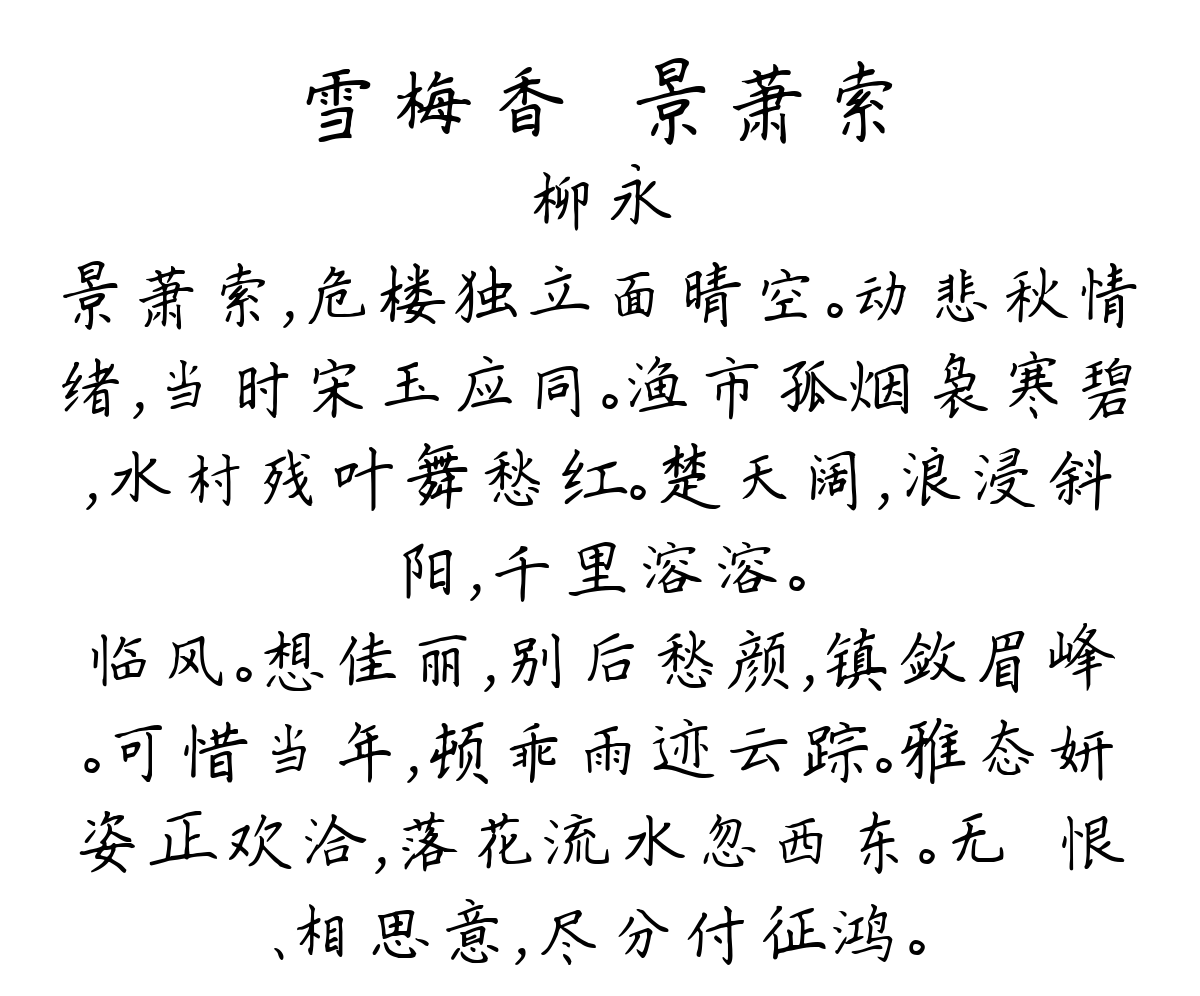 雪梅香 景萧索
柳永
景萧索,危楼独立面晴空。动悲秋情
绪,当时宋玉应同。渔市孤烟袅寒碧
,水村残叶舞愁红。楚天阔,浪浸斜
阳,千里溶溶。
临风。想佳丽,别后愁颜,镇敛眉峰
。可惜当年,顿乖雨迹云踪。雅态妍
姿正欢洽,落花流水忽西东。无 恨
、相思意,尽分付征鸿。